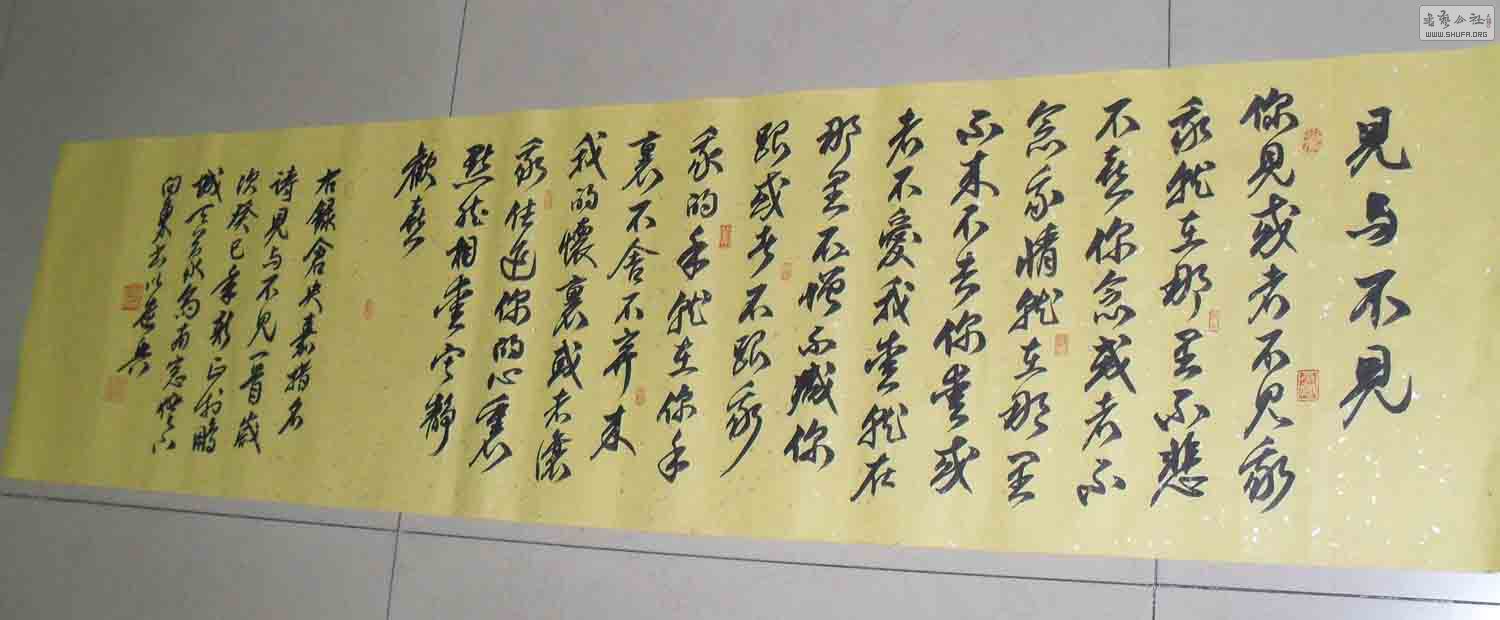 見与不見
你見或者不見我
我就在那里不悲
不喜你念或者不
念我情就在那里
不来不去你愛或
者不愛我愛就在
那里不增不減你
跟或者不跟我
我的手就在你手
裏不舍不弃来
我的懷裏或者讓
我住進你的心裏
默然相愛寂静
歡喜
右録倉央嘉措名
诗見与不見一首歲
次癸巳年
城
向東
WWW.SHUFA.ORG